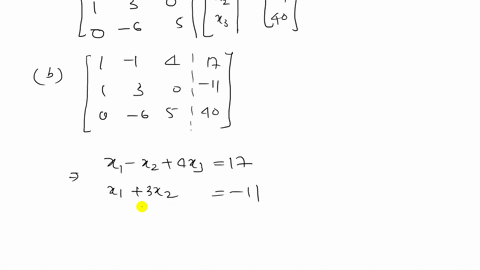 1 3 0
0 -6 5 x₃ 40
(b) 1 -1 4 17
1 3 0 -11
0 -6 5 40
x₁ - x₂ + 4x₃ = 17
⇒ x₁ + 3x₂ = -11